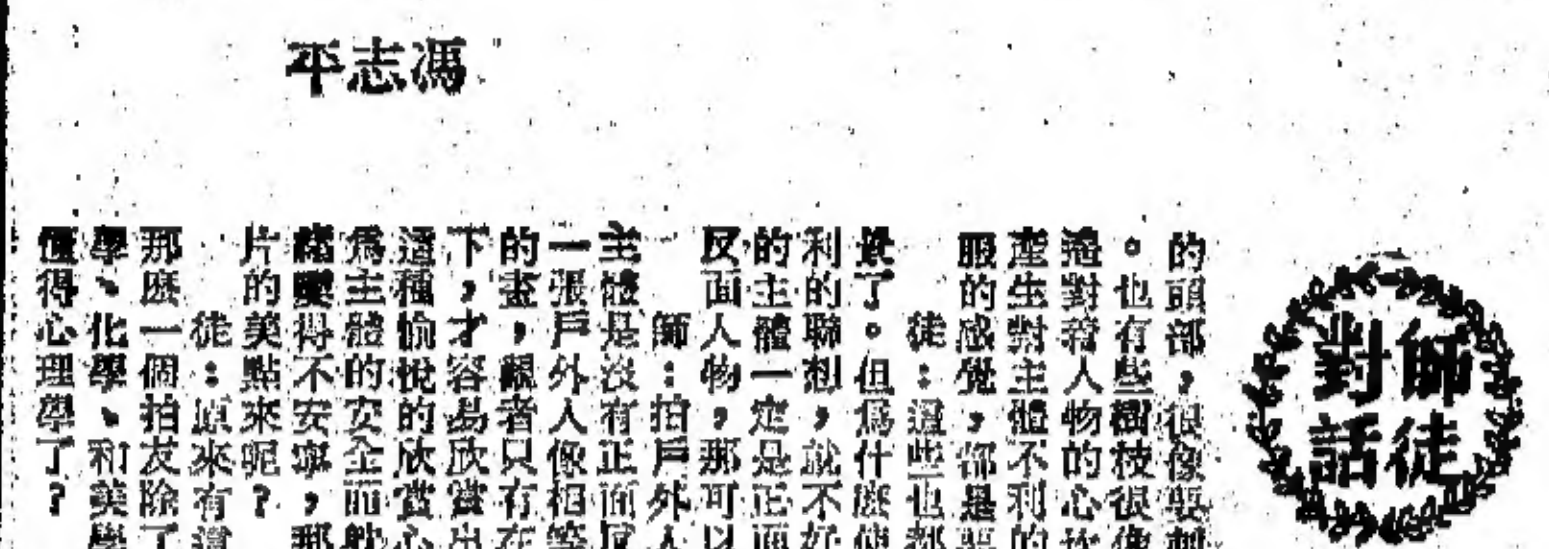 師徒
對話
馮志平
的頭部，很像要刺
。也有些樹枝很像
對着人物的心
產生對主體不利的
服的感覺，都是要
徒：這些也都
景了。但爲什麽使
利的聯想，就不好
的主體一定是正面
反面人物，那可以
師：拍戶外人
主體是沒有正面反
一張戶外人像相等
的畫，觀者只有在
下，才容易欣賞出
這種愉悅的欣賞心
爲主體的安全而
緒變得不安寧，那
片的美點來呢？
徒：原來有這
那麽一個拍友除了
學、化學、和美學
懂得心理學了？